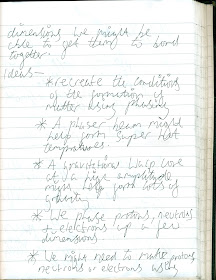 dimensions we might be
able to get them to bond
together.
Ideas—
* recreate the conditions
of the formation of
matter using phasing
* A phaser beam might
help form super hot
temperatures.
* A gravitational warp wave
at a high amplitude
might help form lots of
gravity
* We phase protons, neutrons
+ electrons up a few
dimensions
* We might need to make protons,
neutrons or electrons using